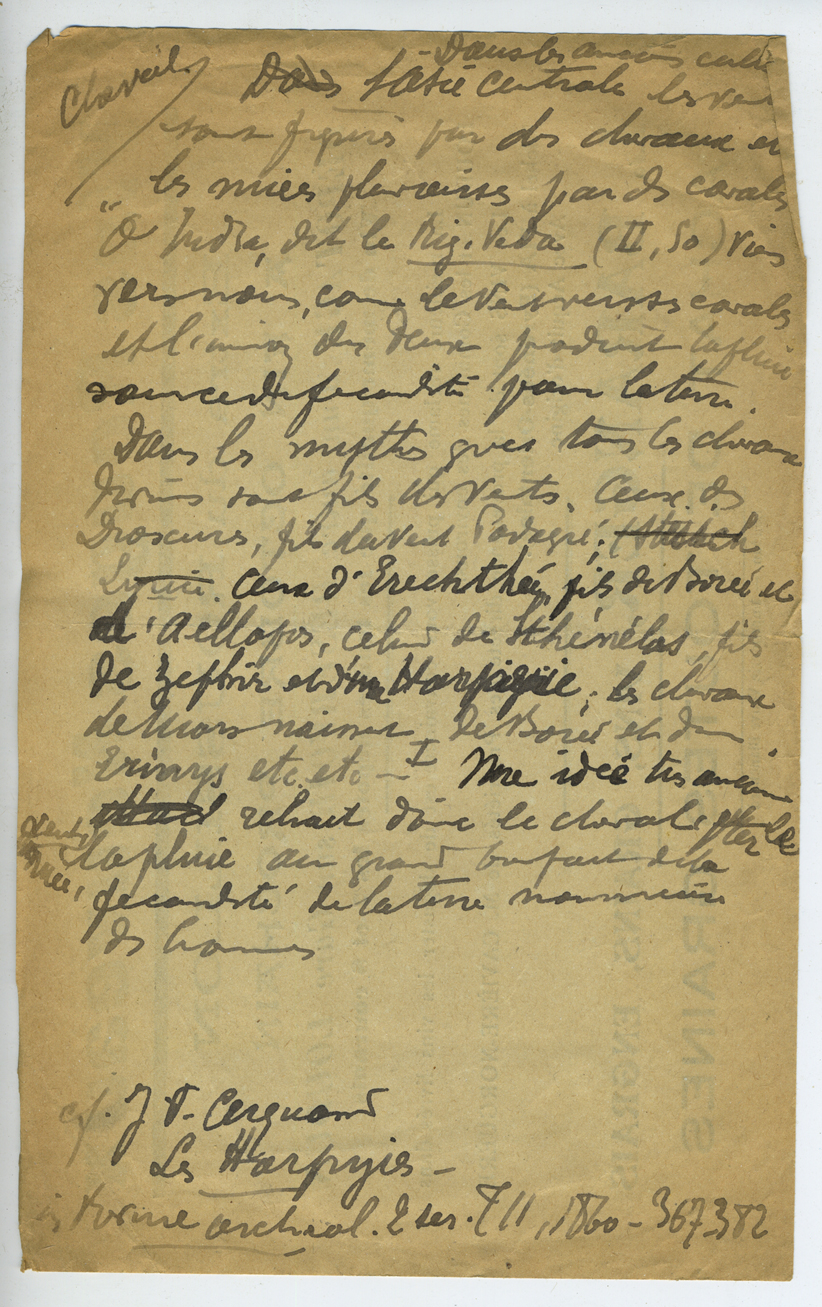 Cheval
- Dans les anciens cultes
Dans l'Asie centrale les vents
sont figurés par des chevaux et
les nuées pluvieuses par des cavales
"O Indra, dit le Rig. Veda (II, 50) viens
vers nous, comme le vent vers ses cavales
et l'union des deux produit la pluie
source de fecondité pour la terre.
Dans les mythes grecs tous les chevaux
divins sont fils des vents. Ceux des
Dioscures, fils du vent Podagré;
Ceux d'Erechthée, fils de Borée et
d'Aellopos, celui de Sthénélas, fils
de Zephir et d'une Harpie; les chevaux
de Mars naissent de Borée et d'une
Erinnys etc. etc. - Une idée très ancienne
relie donc le cheval,
la pluie au grand bienfait de la
fecondité de la terre nourricière
des hommes
cf. J F. Cerquand
Les Harpyies -
in Revue archéol. 2 ser. T II, 1860 - 367-382